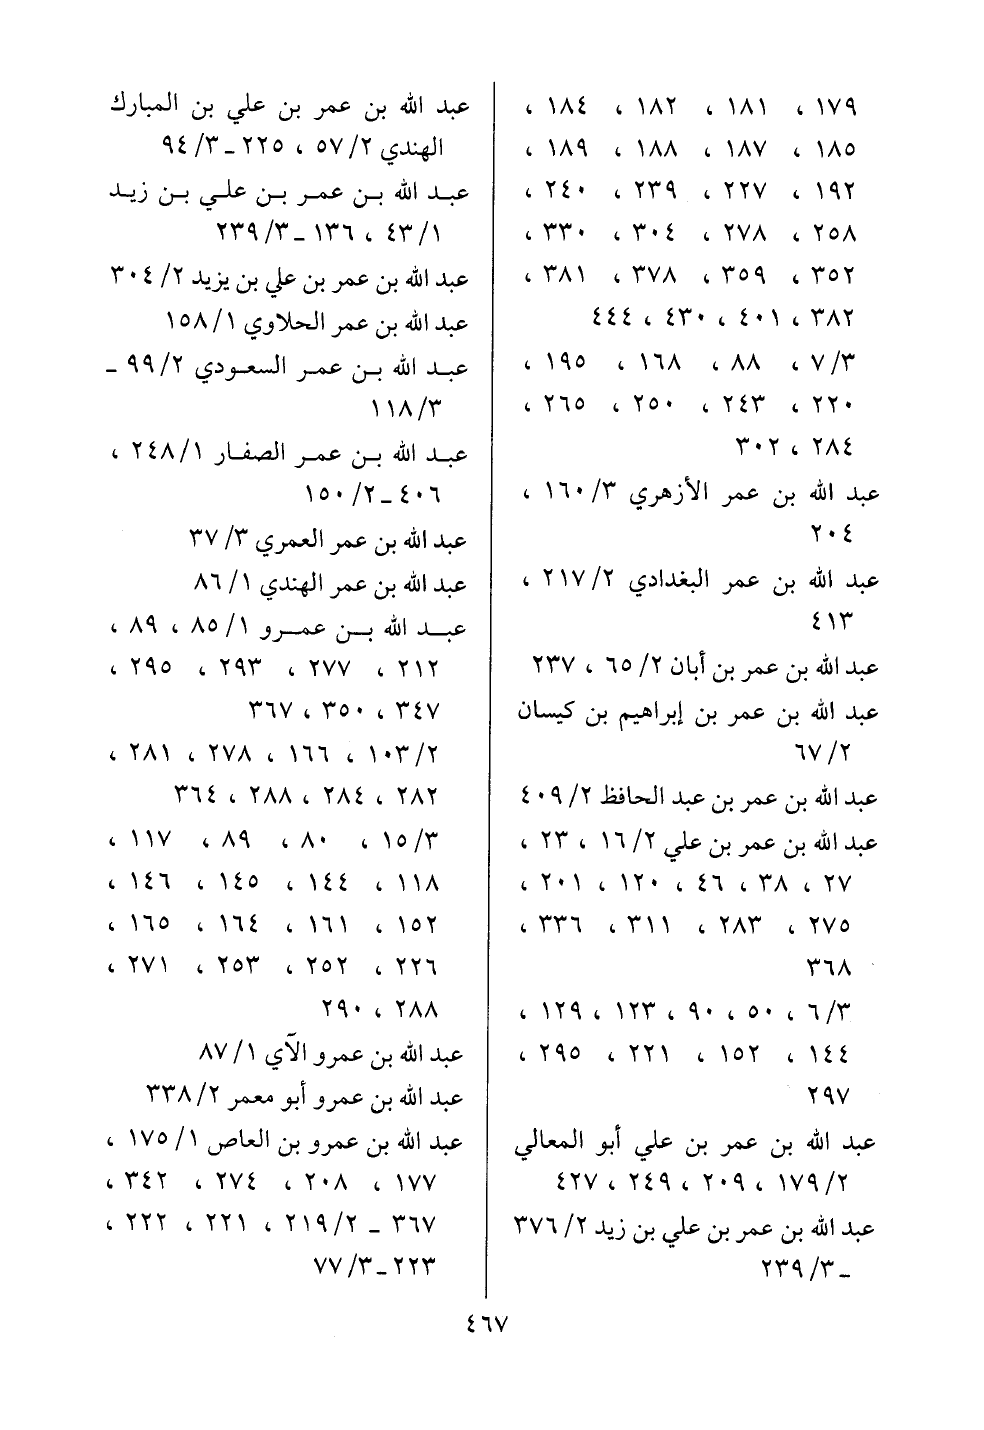 ١٧٩ ، ١٨١ ، ١٨٢ ، ١٨٤ ،
١٨٥ ، ١٨٧ ، ١٨٨ ، ١٨٩ ،
١٩٢ ، ٢٢٧ ، ٢٣٩ ، ٢٤٠ ،
٢٥٨ ، ٢٧٨ ، ٣٠٤ ، ٣٣٠ ،
٣٥٢ ، ٣٥٩ ، ٣٧٨ ، ٣٨١ ،
٣٨٢ ، ٤٠١ ، ٤٣٠ ، ٤٤٤
٣/ ٧ ، ٨٨ ، ١٦٨ ، ١٩٥ ،
٢٢٠ ، ٢٤٣ ، ٢٥٠ ، ٢٦٥ ،
٢٨٤ ، ٣٠٢
عبد الله بن عمر الأزهري ٣/ ١٦٠ ،
٢٠٤
عبد الله بن عمر البغدادي ٢/ ٢١٧ ،
٤١٣
عبد الله بن عمر بن أبان ٢/ ٦٥ ، ٢٣٧
عبد الله بن عمر بن إبراهيم بن كيسان
٢/ ٦٧
عبد الله بن عمر بن عبد الحافظ ٢/ ٤٠٩
عبد الله بن عمر بن علي ٢/ ١٦ ، ٢٣ ،
٢٧ ، ٣٨ ، ٤٦ ، ١٢٠ ، ٢٠١ ،
٢٧٥ ، ٢٨٣ ، ٣١١ ، ٣٣٦ ،
٣٦٨
٣/ ٦ ، ٥٠ ، ٩٠ ، ١٢٣ ، ١٢٩ ،
١٤٤ ، ١٥٢ ، ٢٢١ ، ٢٩٥ ،
٢٩٧
عبد الله بن عمر بن علي أبو المعالي
٢/ ١٧٩ ، ٢٠٩ ، ٢٤٩ ، ٤٢٧
عبد الله بن عمر بن علي بن زيد ٢/ ٣٧٦
ـ ٣/ ٢٣٩
عبد الله بن عمر بن علي بن المبارك
الهندي ٢/ ٥٧ ، ٢٢٥ ـ ٣/ ٩٤
عبد الله بن عمر بن علي بن زيد
١/ ٤٣ ، ١٣٦ ـ ٣/ ٢٣٩
عبد الله بن عمر بن علي بن يزيد ٢/ ٣٠٤
عبد الله بن عمر الحلاوي ١/ ١٥٨
عبد الله بن عمر السعودي ٢/ ٩٩ ـ
٣/ ١١٨
عبد الله بن عمر الصفار ١/ ٢٤٨ ،
٤٠٦ ـ ٢/ ١٥٠
عبد الله بن عمر العمري ٣/ ٣٧
عبد الله بن عمر الهندي ١/ ٨٦
عبد الله بن عمرو ١/ ٨٥ ، ٨٩ ،
٢١٢ ، ٢٧٧ ، ٢٩٣ ، ٢٩٥ ،
٣٤٧ ، ٣٥٠ ، ٣٦٧
٢/ ١٠٣ ، ١٦٦ ، ٢٧٨ ، ٢٨١ ،
٢٨٢ ، ٢٨٤ ، ٢٨٨ ، ٣٦٤
٣/ ١٥ ، ٨٠ ، ٨٩ ، ١١٧ ،
١١٨ ، ١٤٤ ، ١٤٥ ، ١٤٦ ،
١٥٢ ، ١٦١ ، ١٦٤ ، ١٦٥ ،
٢٢٦ ، ٢٥٢ ، ٢٥٣ ، ٢٧١ ،
٢٨٨ ، ٢٩٠
عبد الله بن عمرو الآي ١/ ٨٧
عبد الله بن عمرو أبو معمر ٢/ ٣٣٨
عبد الله بن عمرو بن العاص ١/ ١٧٥ ،
١٧٧ ، ٢٠٨ ، ٢٧٤ ، ٣٤٢ ،
٣٦٧ ـ ٢/ ٢١٩ ، ٢٢١ ، ٢٢٢ ،
٢٢٣ ـ ٣/ ٧٧
٤٦٧